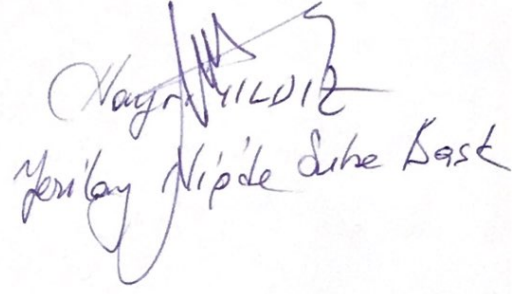 Hayri YILDIZ
Yeşilay Niğde Şube Başk